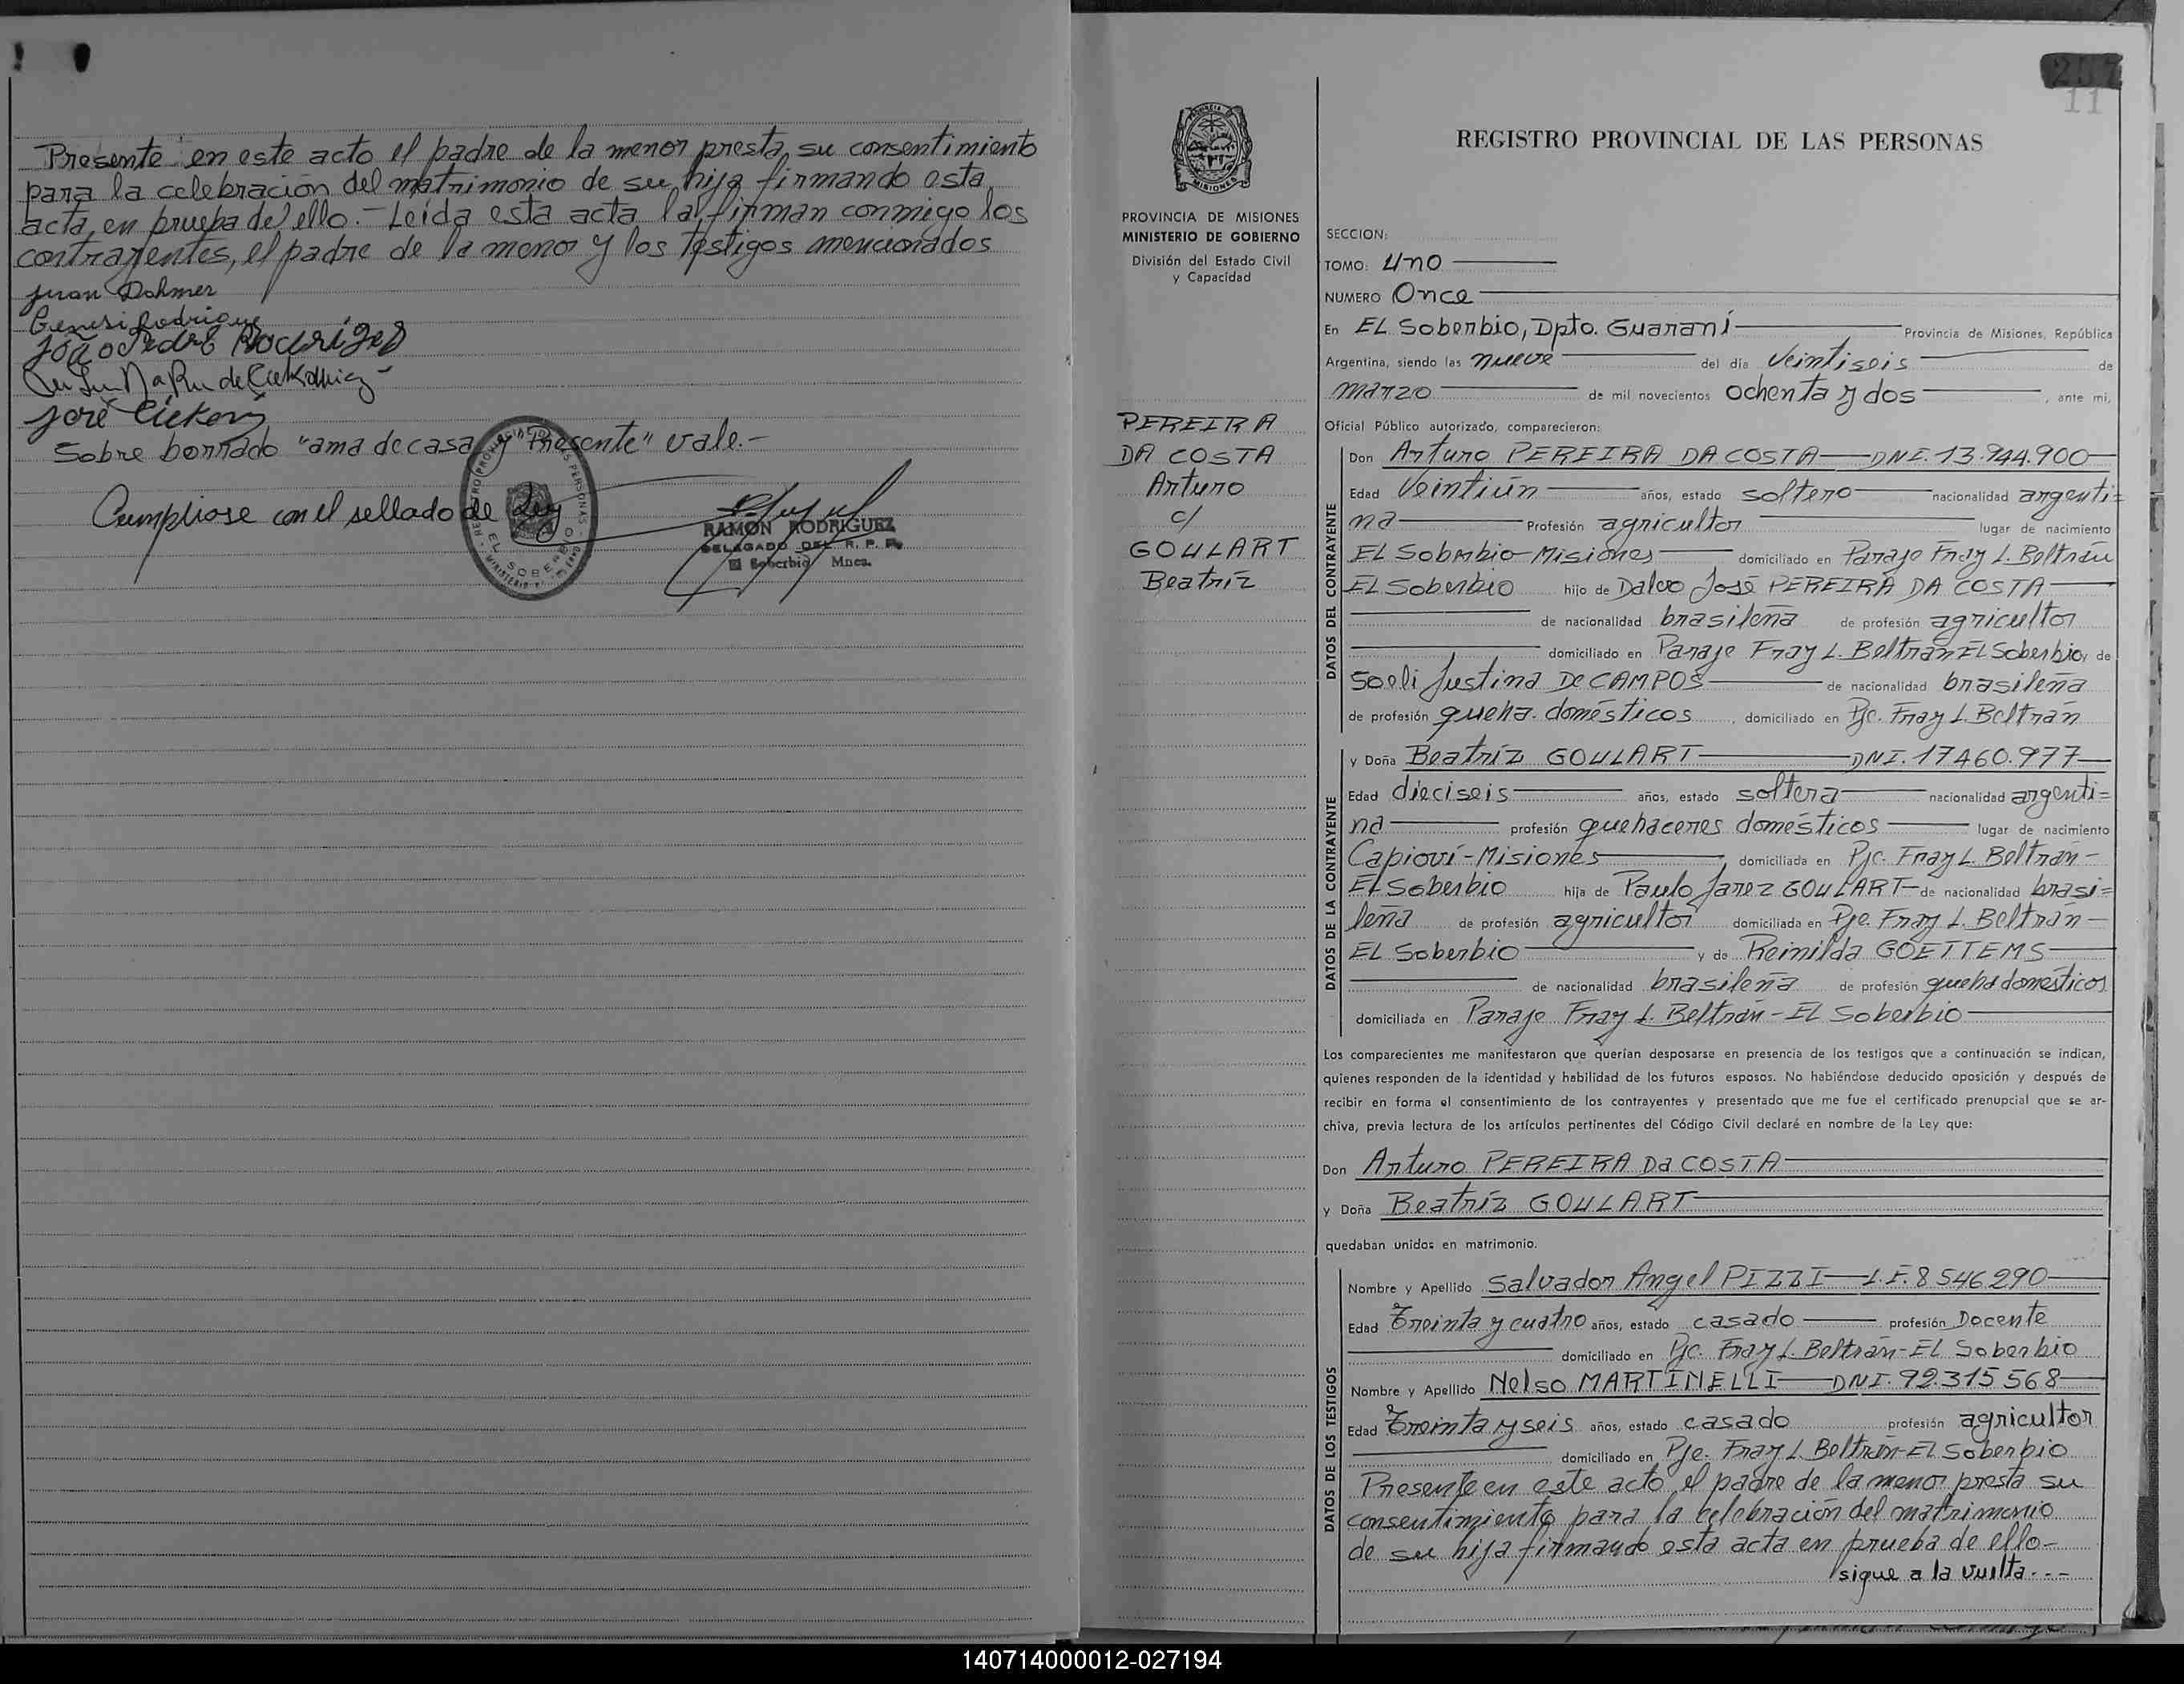 Presente en este acto el padre de la menor presta su consentimiento
para la celebración del matrimonio de su hija firmando esta
acta en prueba de ello.- Leída esta acta la firman conmigo los
contrayentes, el padre de la menor y los testigos mencionados
Juan Dohmer
Genesi Rodrigue
João Pedro Rodrigues
José
Sobre borrado "ama de casa y Presente" vale.-
Cumpliose con el sellado de Ley
RAMON RODRIGUEZ
DELEGADO DEL R. P. P.
El Soberbio Mnes.
EL SOBERBIO
257
11
MISIONES
PROVINCIA DE MISIONES
MINISTERIO DE GOBIERNO
División del Estado Civil
y Capacidad
PEREIRA
DA COSTA
Arturo
c/
GOULART
Beatríz
REGISTRO PROVINCIAL DE LAS PERSONAS
SECCION:
TOMO: Uno
NUMERO Once
En EL Soberbio, Dpto. Guaraní Provincia de Misiones, República
Argentina, siendo las nueve del día Veintiseis de
marzo de mil novecientos ochenta y dos, ante mi,
Oficial Público autorizado, comparecieron:
DATOS DEL CONTRAYENTE
Don Arturo PEREIRA DA COSTA DNI. 13.944.900
Edad Veintiún años, estado soltero nacionalidad argenti=
na Profesión agricultor lugar de nacimiento
EL Soberbio-Misiones domiciliado en Paraje Fray L. Beltrán
EL Soberbio hijo de Dalvo José PEREIRA DA COSTA
de nacionalidad brasileña de profesión agricultor
domiciliado en Paraje Fray L. Beltrán EL Soberbio, de
Soeli Justina DE CAMPOS de nacionalidad brasileña
de profesión queha. domésticos, domiciliado en Pje. Fray L. Beltrán
DATOS DE LA CONTRAYENTE
y Doña Beatríz GOULART DNI. 17.460.977
Edad dieciseis años, estado soltera nacionalidad argenti=
na profesión quehaceres domésticos lugar de nacimiento
Capioví-Misiones, domiciliada en Pje. Fray L. Beltrán-
EL Soberbio hija de Paulo Janez GOULART de nacionalidad brasi=
leña de profesión agricultor domiciliada en Pje. Fray L. Beltrán-
EL Soberbio y de Reinilda GOETTEMS
de nacionalidad brasileña de profesión queha domésticos
domiciliada en Paraje Fray L. Beltrán-EL Soberbio
Los comparecientes me manifestaron que querían desposarse en presencia de los testigos que a continuación se indican,
quienes responden de la identidad y habilidad de los futuros esposos. No habiéndose deducido oposición y después de
recibir en forma el consentimiento de los contrayentes y presentado que me fue el certificado prenupcial que se ar-
chiva, previa lectura de los artículos pertinentes del Código Civil declaré en nombre de la Ley que:
Don Arturo PEREIRA Da COSTA
y Doña Beatríz GOULART
quedaban unidos en matrimonio.
DATOS DE LOS TESTIGOS
Nombre y Apellido Salvador Angel PIZZI L.E. 8 546 290
Edad Treinta y cuatro años, estado casado profesión Docente
domiciliado en Pje. Fray L. Beltrán-EL Soberbio
Nombre y Apellido Nelso MARTINELLI DNI. 92.315 568
Edad Treinta y seis años, estado casado profesión agricultor
domiciliado en Pje. Fray L Beltrán-EL Soberbio
Presente en este acto el padre de la menor presta su
consentimiento para la celebración del matrimonio
de su hija firmando esta acta en prueba de ello-
sigue a la vuelta...
140714000012-027194